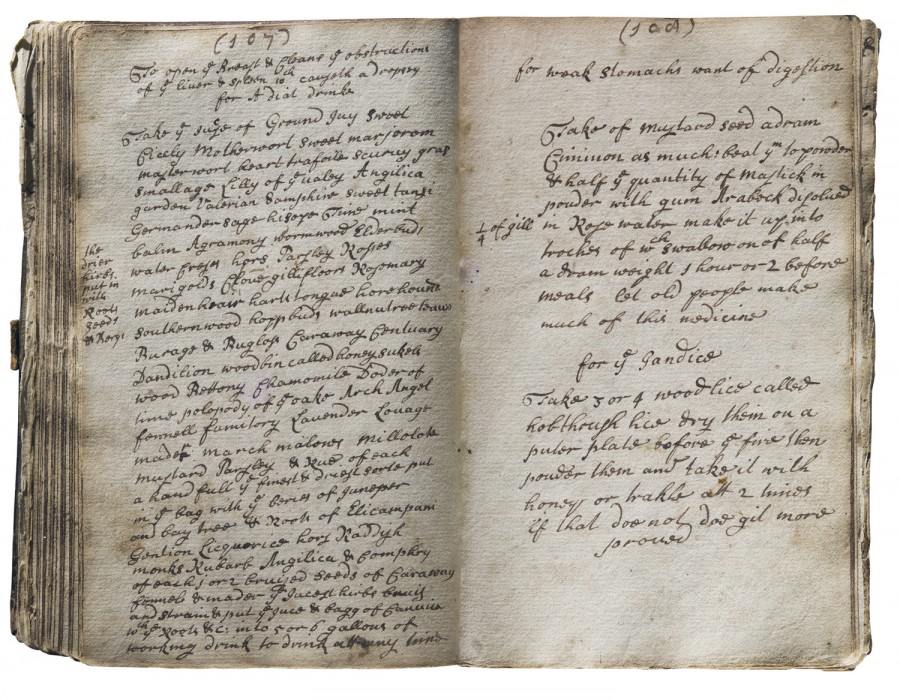 (107)
To open ye Breast & Cleans ye obstructions
of ye liver & spleen wch causeth a dropsy
for A diat drinke
Take ye juse of Ground Juy sweet
Cicely Motherwort sweet marjoram
masterwort heart trafoile scurvy gras
smallage Lilly of ye valey Angilica
garden valerian samphire sweet tansi
Germander sage hisope Time mint
balm Agramony wormwood Elderbuds
water creses hors Parsley Roses
marigolds Clovegillifloors Rosemary
maidenheair harts tongue horehound
Southernwood hoppbuds wallnutree leaus
Burage & Buglos Caraway Centuary
Dandilion woodbin called honey sukels
wood Bettony Chamomile Doder of
time polopody of ye oake Arch Angel
fennell fumitory Lavender Lovage
mader march malows millolote
mustard Parsley & Rue of each
a hand full ye finest & driest sorte put
in ye bag with ye beries of Juneper
and bay tree & Roots of Elicampani
Gention Licquorice hors Raddish
monks Rubarb Angilica & Comphry
of each 1 or 2 bruised seeds of Caraway
fennel & mader ye Jucest hirbs bruis
and strain & put ye Juce & bagg of Canuis
wth ye Roots &c: into 5 or 6 gallons of
working drink to drink att any time
the
drier
hirbs
put in
with
Roots
seeds
& berys
(108)
for weak stomachs want of digestion
Take of mustard seed a dram
Ciminon as much: beat ym to powder
& half ye quantity of Mastick in
powder with gum Araback disolued
1/4 of gill
in Rose water make it up into
troches of wch swabow on of half
a dram weight 1 hour or 2 before
meals let old people make
much of this medicine
for ye Jandice
Take 3 or 4 woodlice called
hobthough lice dry them on a
puter plate before ye fire then
pouder them and take it with
honey or trakle att 2 times
If that doe not doe git more
proued